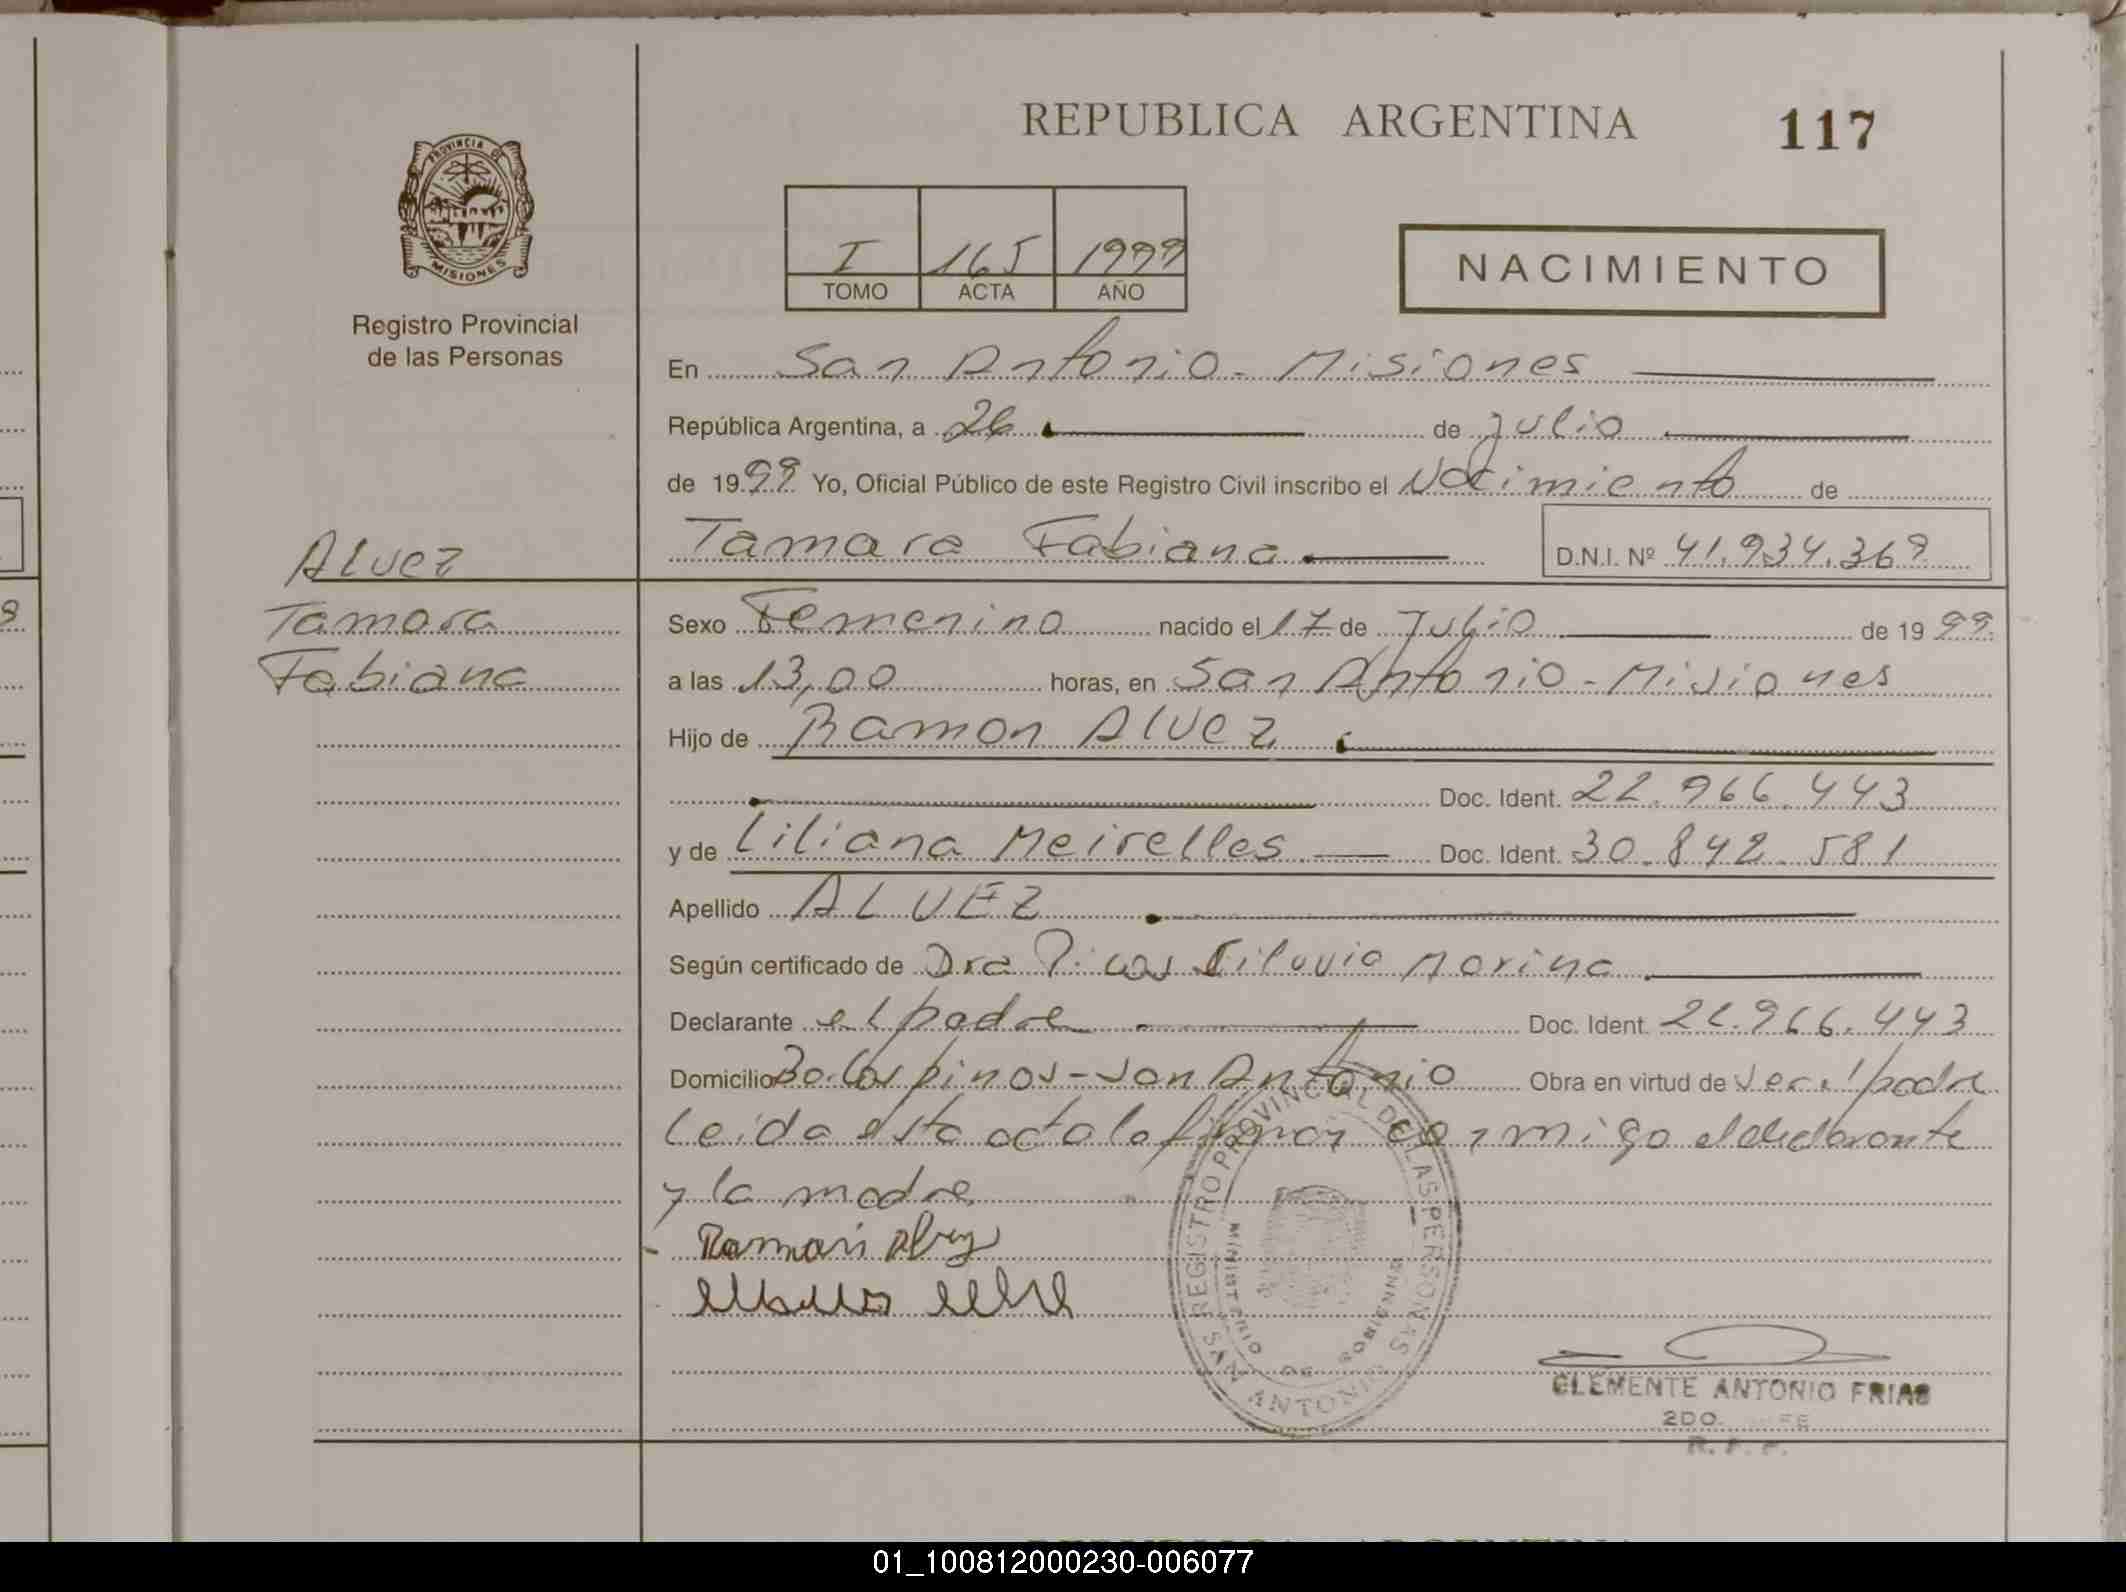 REPUBLICA ARGENTINA
117
PROVINCIA DE
MISIONES
Registro Provincial
de las Personas
I 165 1999
TOMO ACTA AÑO
NACIMIENTO
En San Antonio - Misiones
República Argentina, a 26 de Julio
de 1999 Yo, Oficial Público de este Registro Civil inscribo el Nacimiento de
Tamara Fabiana D.N.I. Nº 41.934.369
Alvez
Tamara
Fabiana
Sexo Femenino nacido el 17 de Julio de 1999
a las 13,00 horas, en San Antonio - Misiones
Hijo de Ramon Alvez
Doc. Ident. 22.966.443
y de Liliana Meirelles Doc. Ident. 30.842.581
Apellido ALVEZ
Según certificado de Dra Marina
Declarante el padre Doc. Ident. 22.966.443
Domicilio Bo. Los pinos - San Antonio Obra en virtud de ser el padre
Leida esta acta la firman conmigo el declarante
y la madre
Ramon Alvez
REGISTRO PROVINCIAL DE LAS PERSONAS
MINISTERIO DE GOBIERNO
SAN ANTONIO
CLEMENTE ANTONIO FRIAS
2DO. JEFE
R. P. P.
REPUBLICA ARGENTINA
01_100812000230-006077